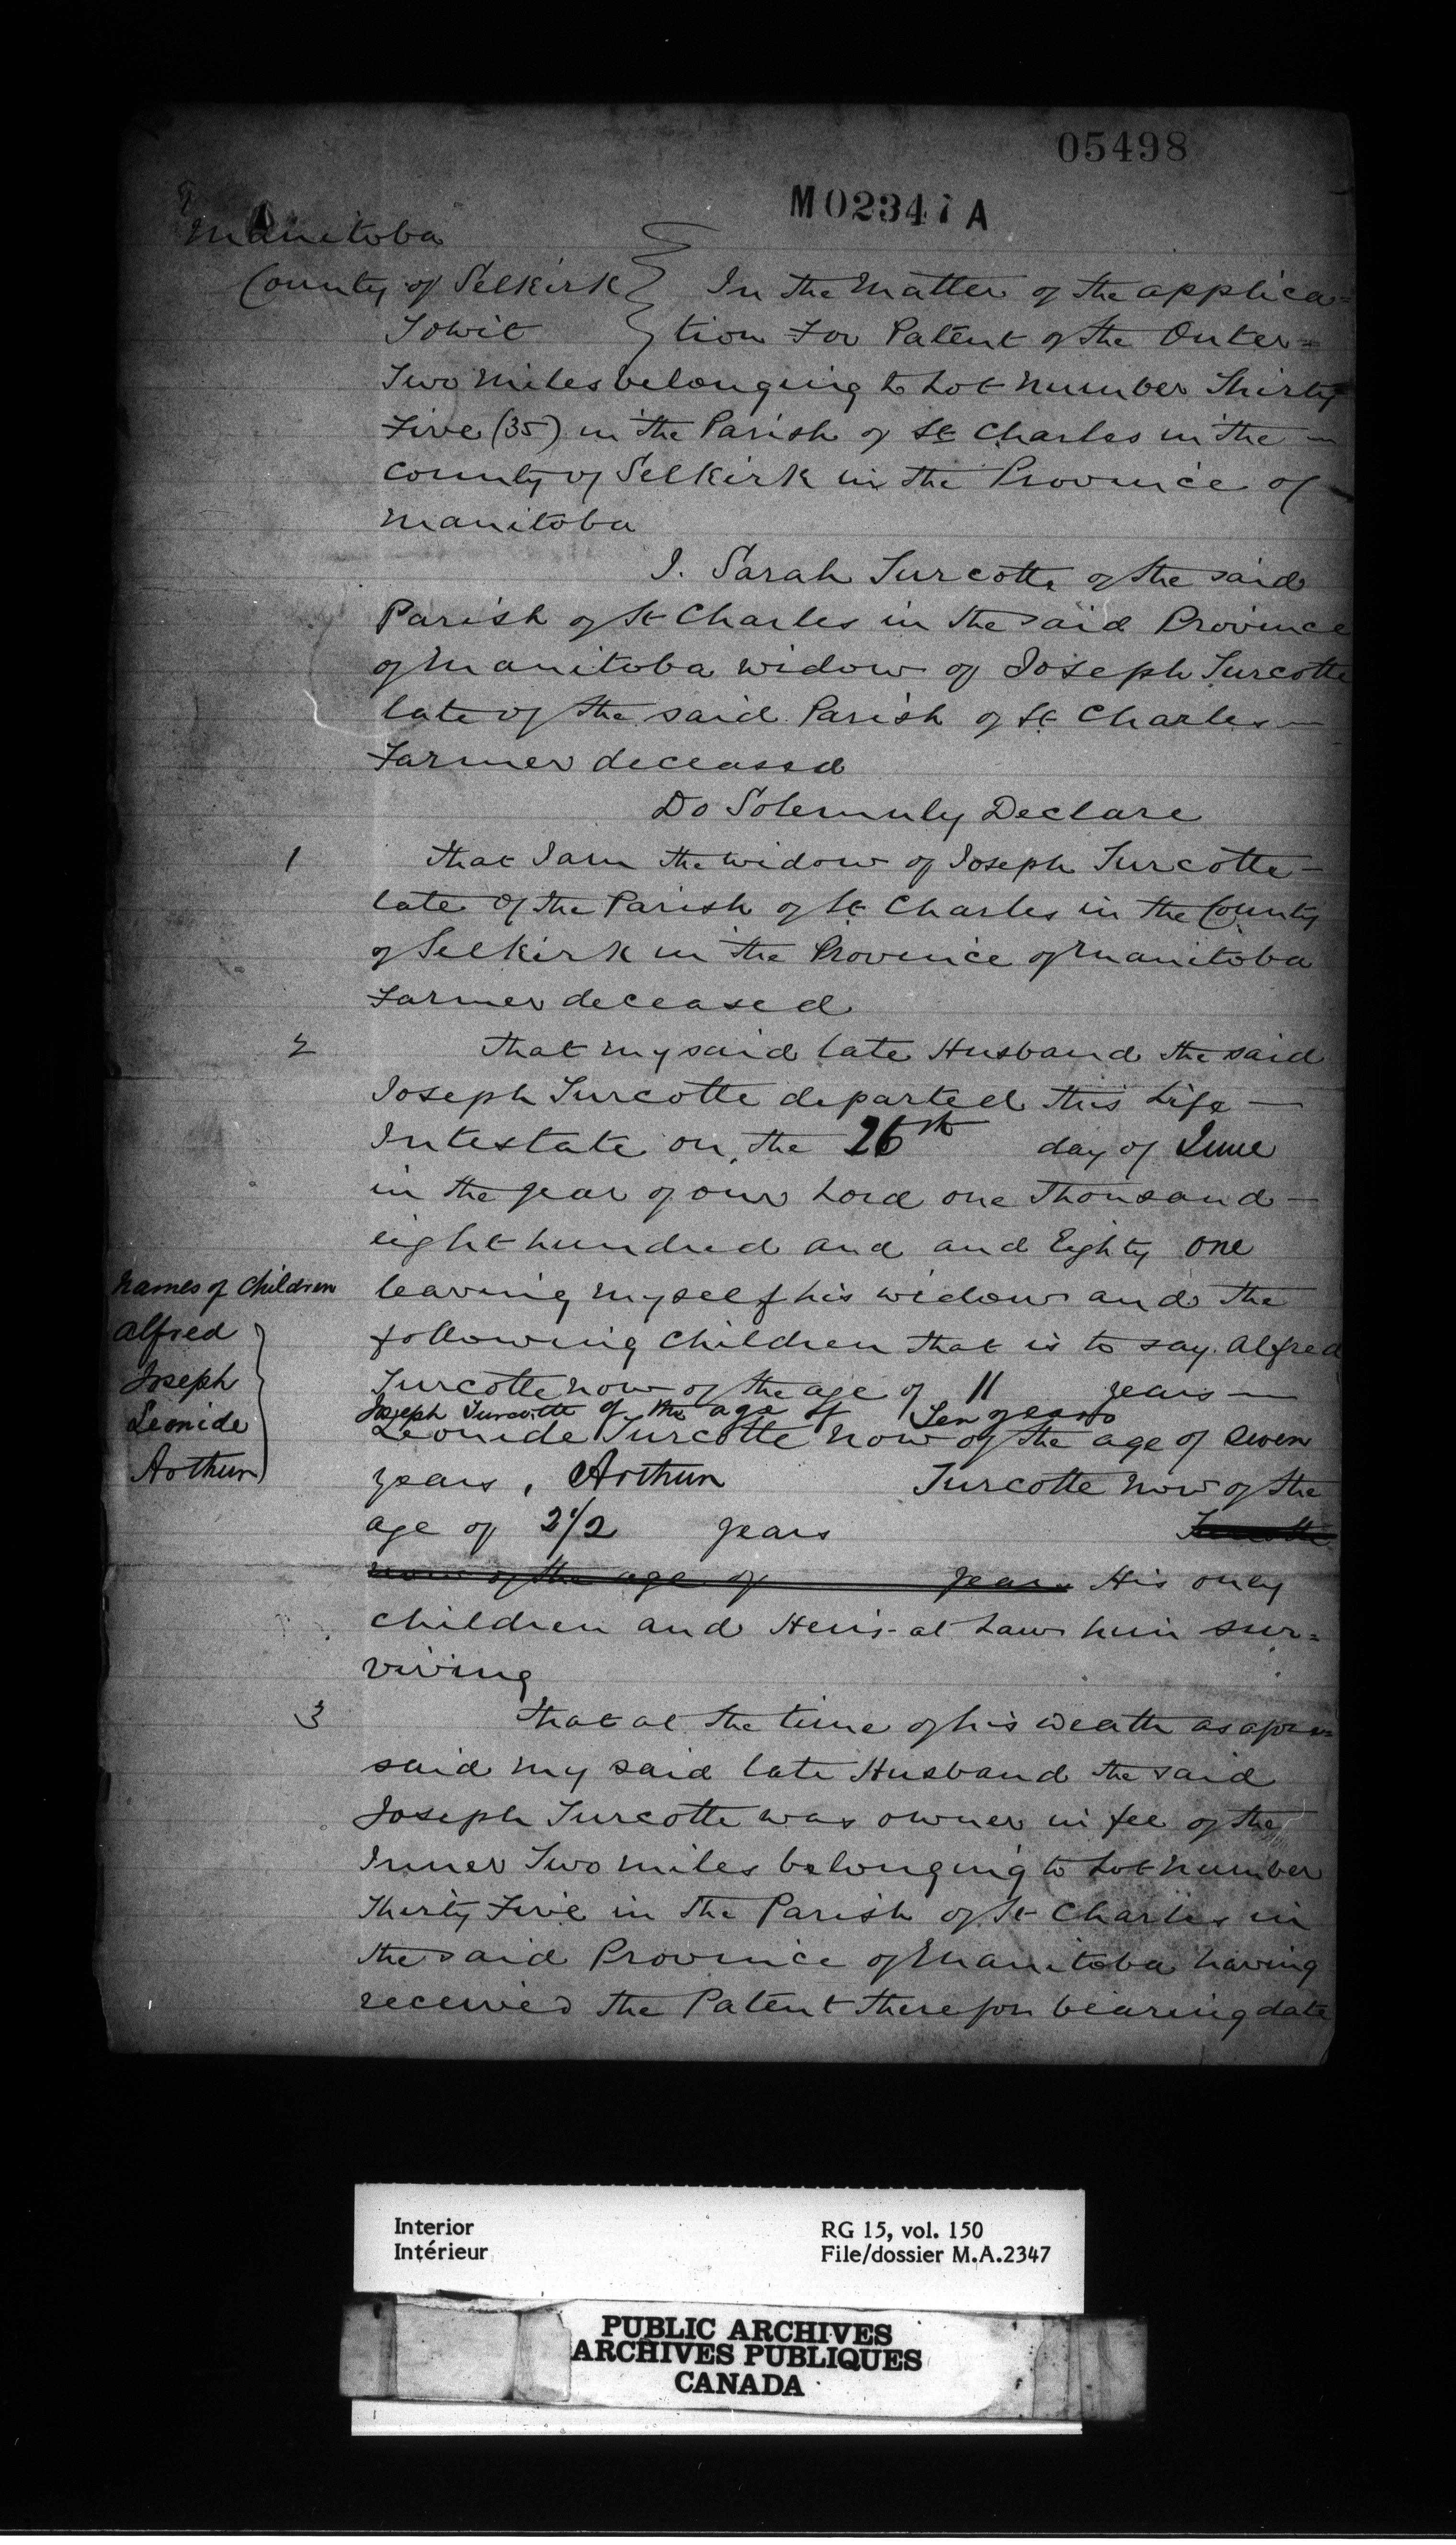 05498
M02347A
Manitoba
County of Selkirk } In the Matter of the applica=
Towit } tion For Patent of the Outer=
Two Miles belonging to Lot number Thirty
Five (35) in the Parish of St Charles in the —
County of Selkirk in the Province of
Manitoba
I. Sarah Turcotte of the said
Parish of St Charles in the said Province
of Manitoba widow of Joseph Turcotte
late of the said Parish of St Charles —
Farmer deceased
Do Solemnly Declare
1 that I am the widow of Joseph Turcotte —
late of the Parish of St Charles in the County
of Selkirk in the Province of Manitoba
Farmer deceased
2 that my said late Husband the said
Joseph Turcotte departed this Life —
Intestate on the 26th day of June
in the year of our Lord one Thousand —
eight hundred and and Eighty one
names of Children leaving myself his widow and the
Alfred following Children that is to say. Alfred
Joseph Turcotte now of the age of 11 years —
Joseph Turcotte of the age of Ten years
Leonide Leonide Turcotte now of the age of seven
Arthur years, Arthur Turcotte now of the
age of 2 1/2 years Turcotte
now of the age of years His only
children and Heirs-at Law him sur=
viving
3 that at the time of his Death as afore=
said my said late Husband the said
Joseph Turcotte was owner in fee of the
Inner Two miles belonging to Lot number
Thirty Five in the Parish of St Charles in
the said Province of Manitoba having
received the Patent therefor bearing date
Interior RG 15, vol. 150
Intérieur File/dossier M.A.2347
PUBLIC ARCHIVES
ARCHIVES PUBLIQUES
CANADA